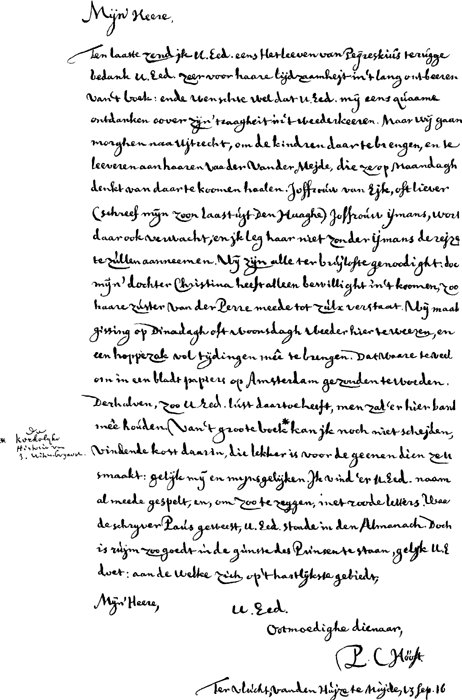 Mijn Heere,
Ten laatste zend jk U. Eed. eens Het leeven van Peijreskius terugge
bedank U. Eed. zeer voor haare lijdzaemhejt in't lang ontbeeren
van't boek: ende wenschte wel dat U. Eed. mij eens quaame
ontdanken oover zijn' traaghejt in't weederkeeren. Maar wij gaan
morghen naa Ujtrecht, om de kindren daar te brengen, en te
leeveren aan haaren vaeder Van der Mejde, die ze op Maandagh
denkt van daar te koomen haalen. Joffrouw van Ejk, oft liever
(schreef mijn zoon laast ujt Den Haaghe) Joffrouw ijmans, wort
daar ook verwacht, en jk leg haar niet zonder ijmans de rejze
te zullen aanneemen. Wij zijn alle ter bruijlofte genoodight: doch
mijn' dochter Christina heeft alleen bewillight in't koomen, zoo
haare zuster Van der Perre meede tot zulx verstaat. Wij maak
gissing op Dinsdagh oft woonsdagh weeder hier te weezen, en
een hoppezak vol tijdingen meê te brengen. Dat waare te veel
om in een bladt papiers op Amsterdam gezonden te worden.
Derhalven, zoo U. Eed. lust daartoe heeft, men zal 'er hier bank
meê houden. Van't groote boek* kan jk noch niet schejden,
* De
Kerkelijke
Historie van
J. Wtenbogaert.
vindende kost daarin, die lekker is voor de geenen dien zeu
smaakt: gelijk mij en mijnsgelijken. Jk vind 'er U. Eed. naam
al meede gespelt, en, om zoo te zeggen, met roode letters. Waar
de schrijver Paus geweest, U. Eed. stonde in den Almanach. Doch
is ruim zoo goedt in de gunste des Prinsen te staan, gelijk U. E
doet: aan de welke zich op't hartlijkste gebiedt,
Mijn' Heere,
U. Eed.
Ootmoedighe dienaar,
P. C. Hooft.
Ter vlucht, van den Huize te Muide, 13 Sep. 16